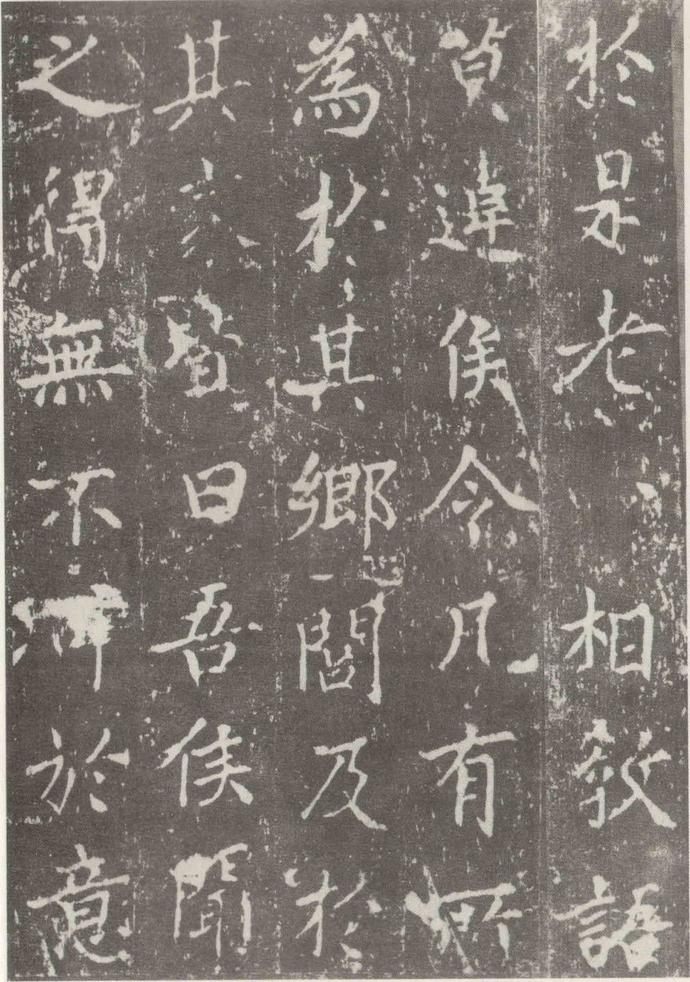 於是老相教語
莫違侯令凡有所
為於其鄉閭及於
其家皆曰吾侯聞
之得無不於意